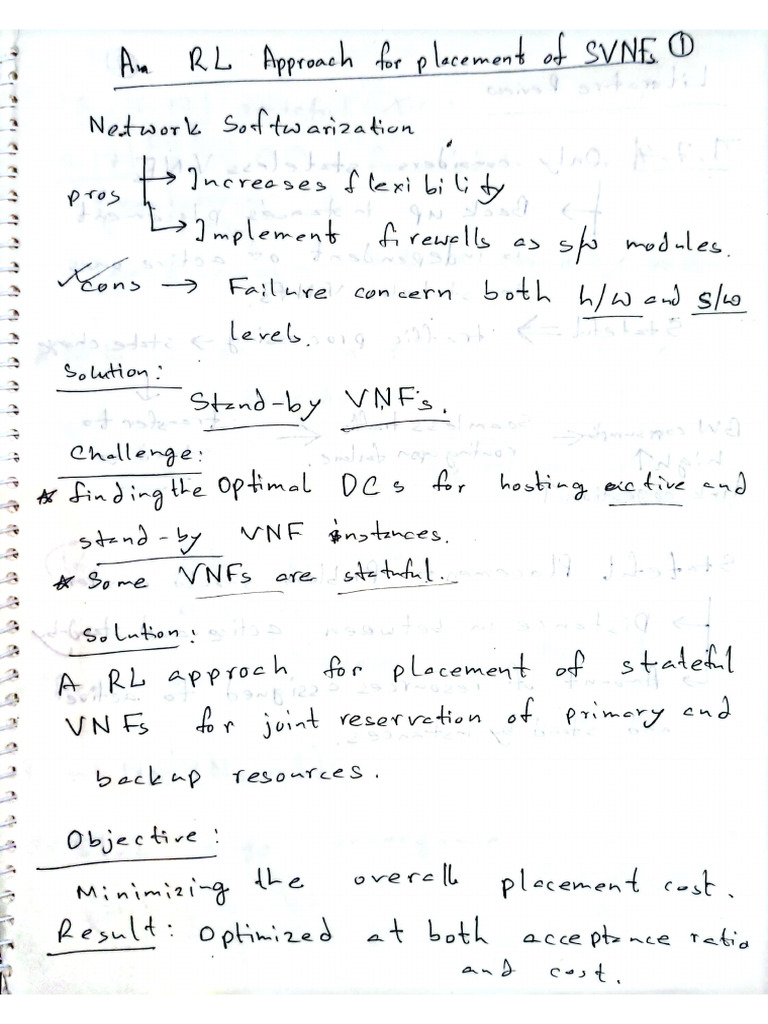 An RL Approach for placement of SVNFs ①
Network Softwarization
pros → Increases flexibility
→ Implement firewalls as s/w modules.
cons → Failure concern both h/w and s/w
levels.
Solution:
Stand-by VNFs.
Challenge:
* finding the optimal DCs for hosting active and
stand-by VNF instances.
* Some VNFs are stateful.
Solution:
A RL approch for placement of stateful
VNFs for joint reservation of primary and
backup resources.
Objective:
Minimizing the overall placement cost.
Result: Optimized at both acceptance ratio
and cost.